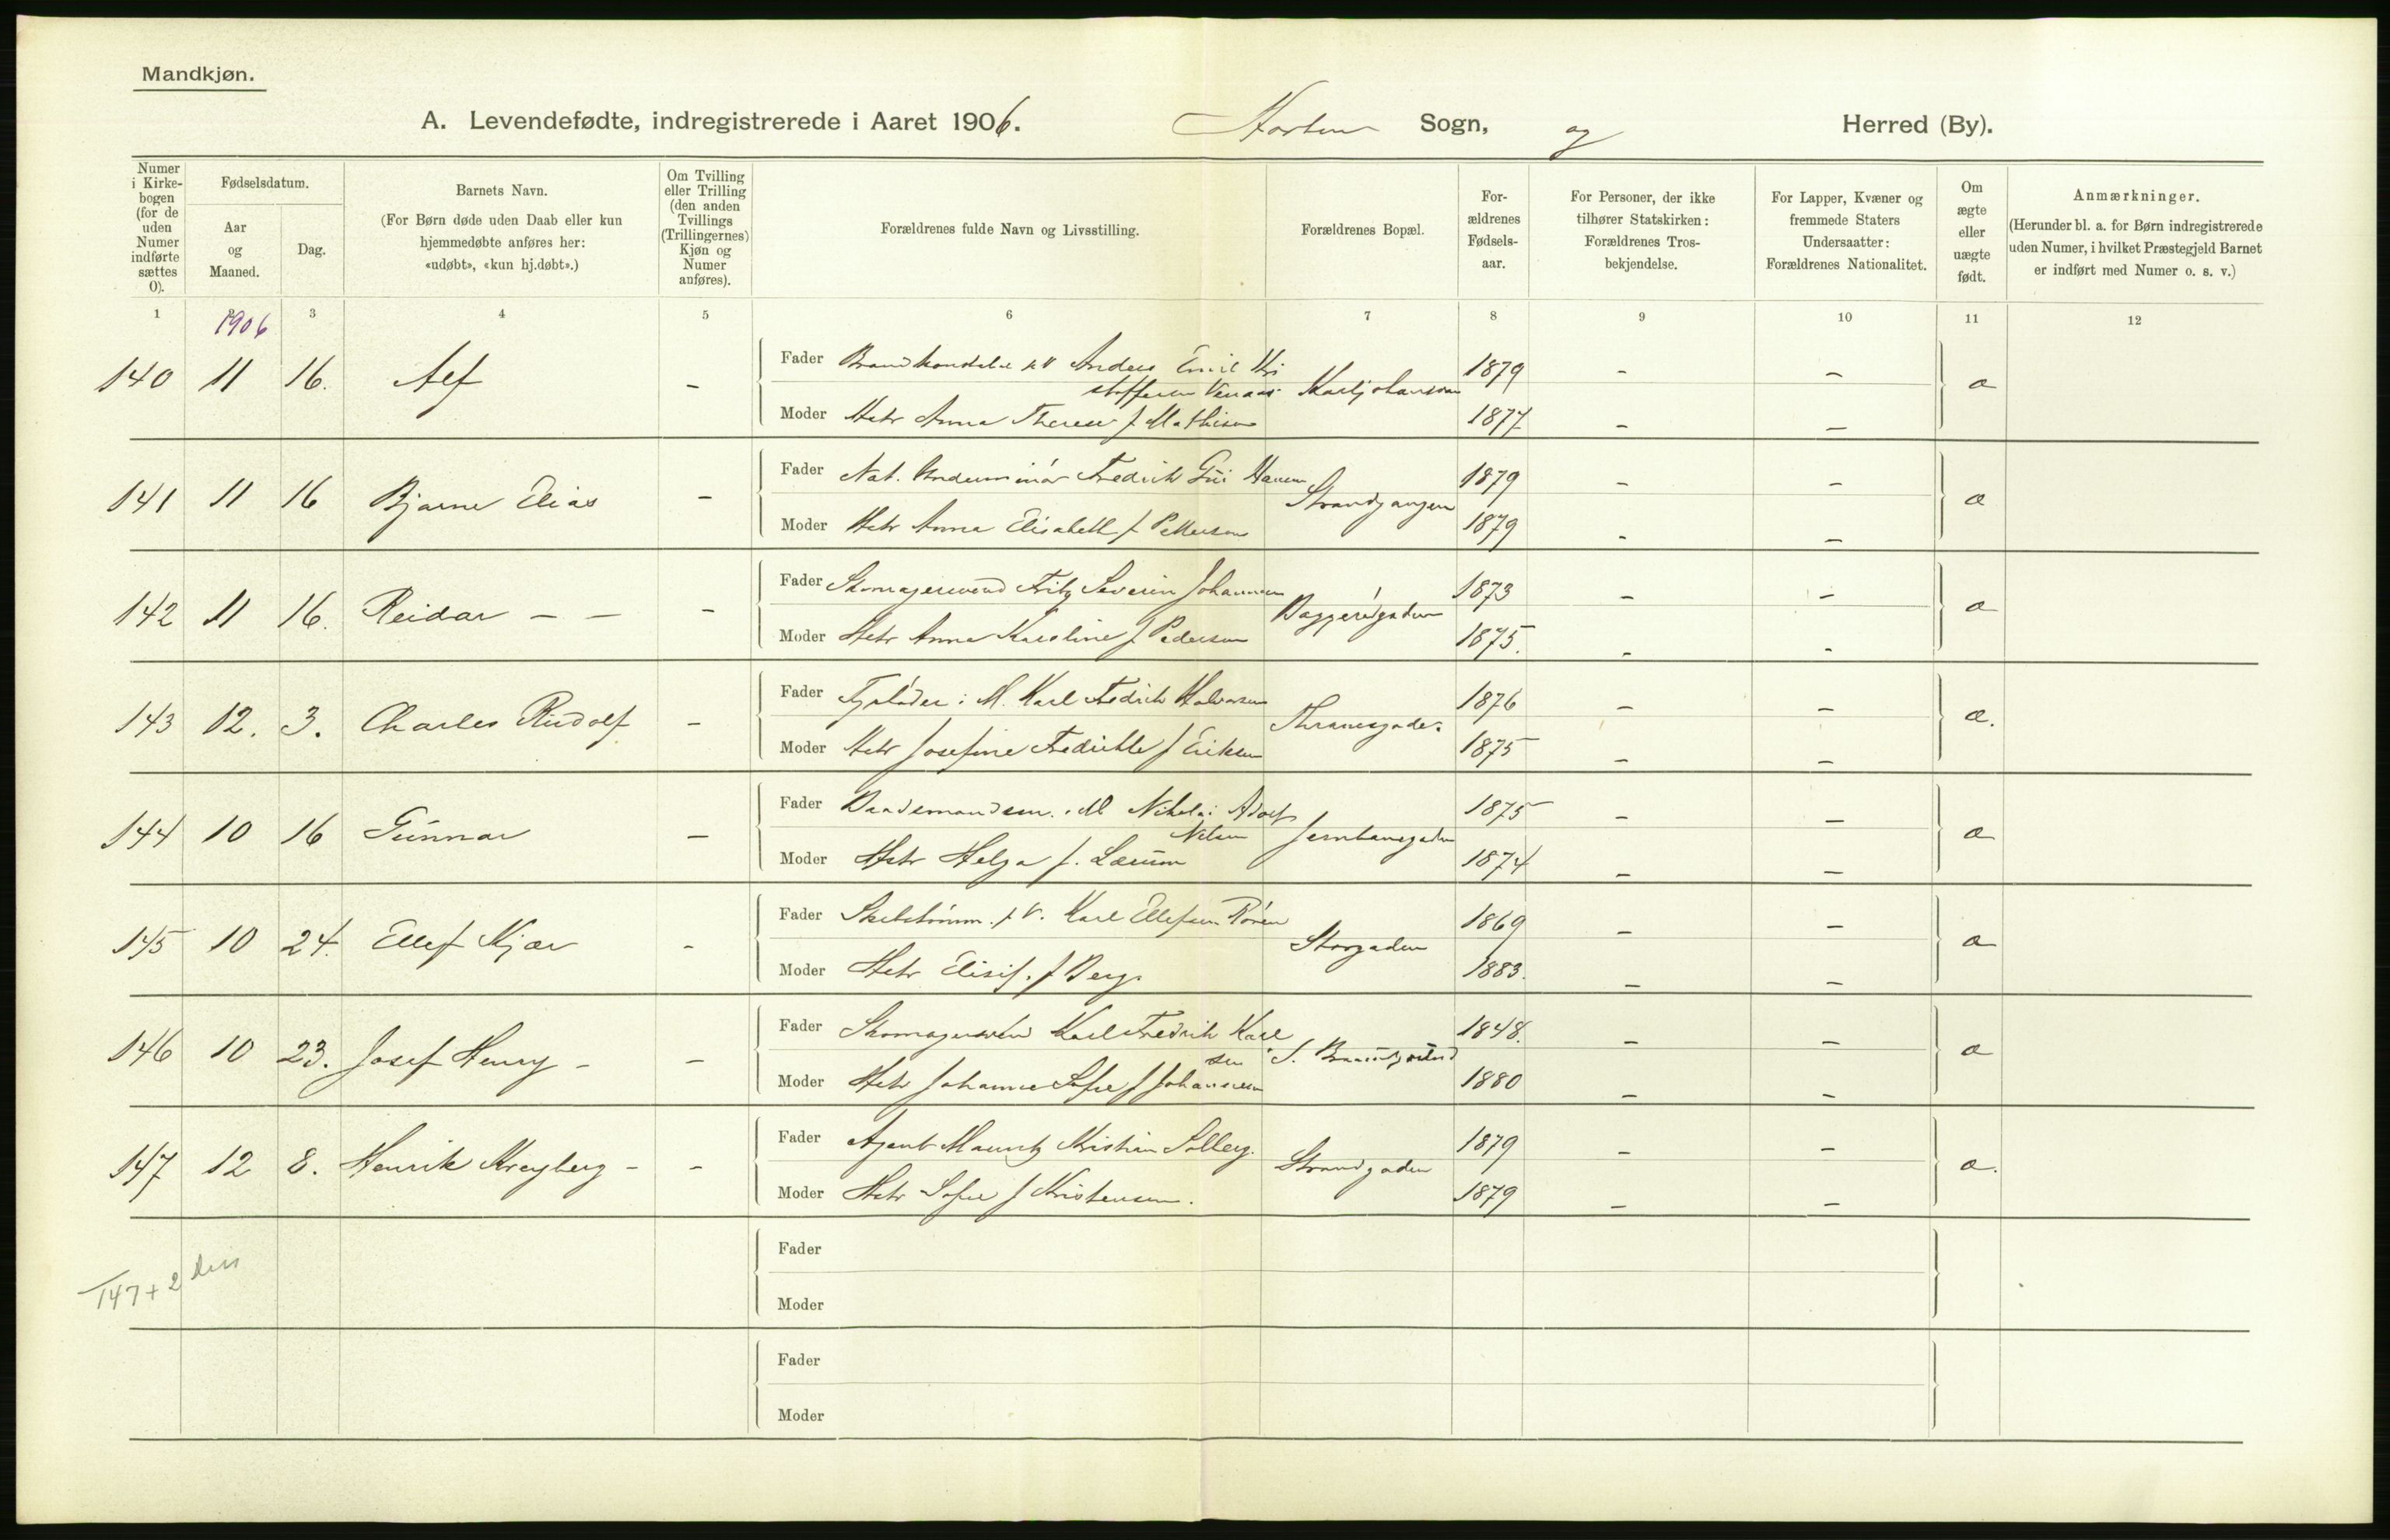 Mandkjøn.
A. Levendefødte, indregistrerede i Aaret 1906. Horten Sogn, og Herred (By).
Numer i Kirkebogen (for de uden Numer indførte sættes 0).
Fødselsdatum.
Aar og Maaned.
Dag.
Barnets Navn.
(For Børn døde uden Daab eller kun hjemmedøbte anføres her: «udøbt», «kun hj.døbt».)
Om Tvilling eller Trilling (den anden Tvillings (Trillingernes) Kjøn og Numer anføres).
Forældrenes fulde Navn og Livsstilling.
Forældrenes Bopæl.
Forældrenes Fødselsaar.
For Personer, der ikke tilhører Statskirken: Forældrenes Trosbekjendelse.
For Lapper, Kvæner og fremmede Staters Undersaatter: Forældrenes Nationalitet.
Om ægte eller uægte født.
Anmærkninger.
(Herunder bl. a. for Børn indregistrerede uden Numer, i hvilket Præstegjeld Barnet er indført med Numer o. s. v.)
1 3 4 5 6 7 8 9 10 11 12
1906
140 11 16. Alf - Fader Anders Emil Kri 1879 - -
stoffersen Karljohansvern æ
Moder Hstr Anna Therese f Mathisen 1877 - -
141 11 16 Bjarne Elias - Fader Fredrik Hansen 1879 - -
Strandgangen æ
Moder Hstr Anna Elisabeth f Pettersen 1879 - -
142 11 16. Reidar - - - Fader Skomagersvend Fritz Severin Johannesen 1873 - -
Baggerødgaden æ
Moder Hstr Anna Karoline f Pedersen 1875. - -
143 12. 3. Charles Rudolf - Fader Karl Fredrik Halvorsen 1876 - -
Thranesgade. æ.
Moder Hstr Josefine Fredrikke f Eriksen 1875 - -
144 10 16 Gunnar - Fader Baadsmandsm. i M Nikolai Adolf 1875 - -
Nilsen Jernbanegaden æ
Moder Hstr Helga f. 1874 - -
145 10 24. Ellef Kjær - Fader Karl Ellefsen 1869 - -
Storgaden æ
Moder Hstr Elisif. f Berg. 1883. - -
146 10 23. Josef Henry - - Fader Karl Fredrik Karl 1848. - -
sen S. æ
Moder Hstr Johanne Sofie f Johannesen 1880 - -
147 12 8. Henrik Kreyberg - - Fader Agent Mauritz Kristian Solberg. 1879 - -
Strandgaden æ.
Moder Hstr Sofie f Kristensen. 1879 - -
Fader
147 + 2
Moder
Fader
Moder